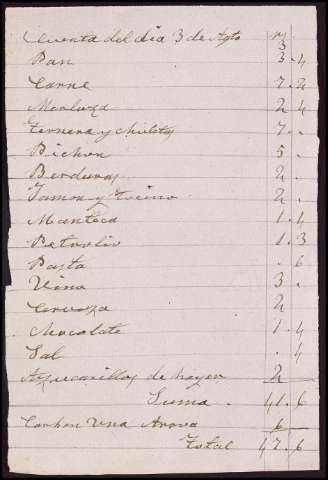 Cuenta del dia 3 de Agto
3
Pan 3.4
Carne 7.2
Merluza 2 4
Ternera y chuletas 7..
Pichon 5.
Berduras 2.
Jamon y tocino 2.
Manteca 1.4
Petrolio 1.3
Pasta .6
Vino 3.
Cerveza 2
Chocolate 1.4
Sal .4
Azucarillos de 2
Suma. 41.6
Carbon una Arova 6
Total 47.6